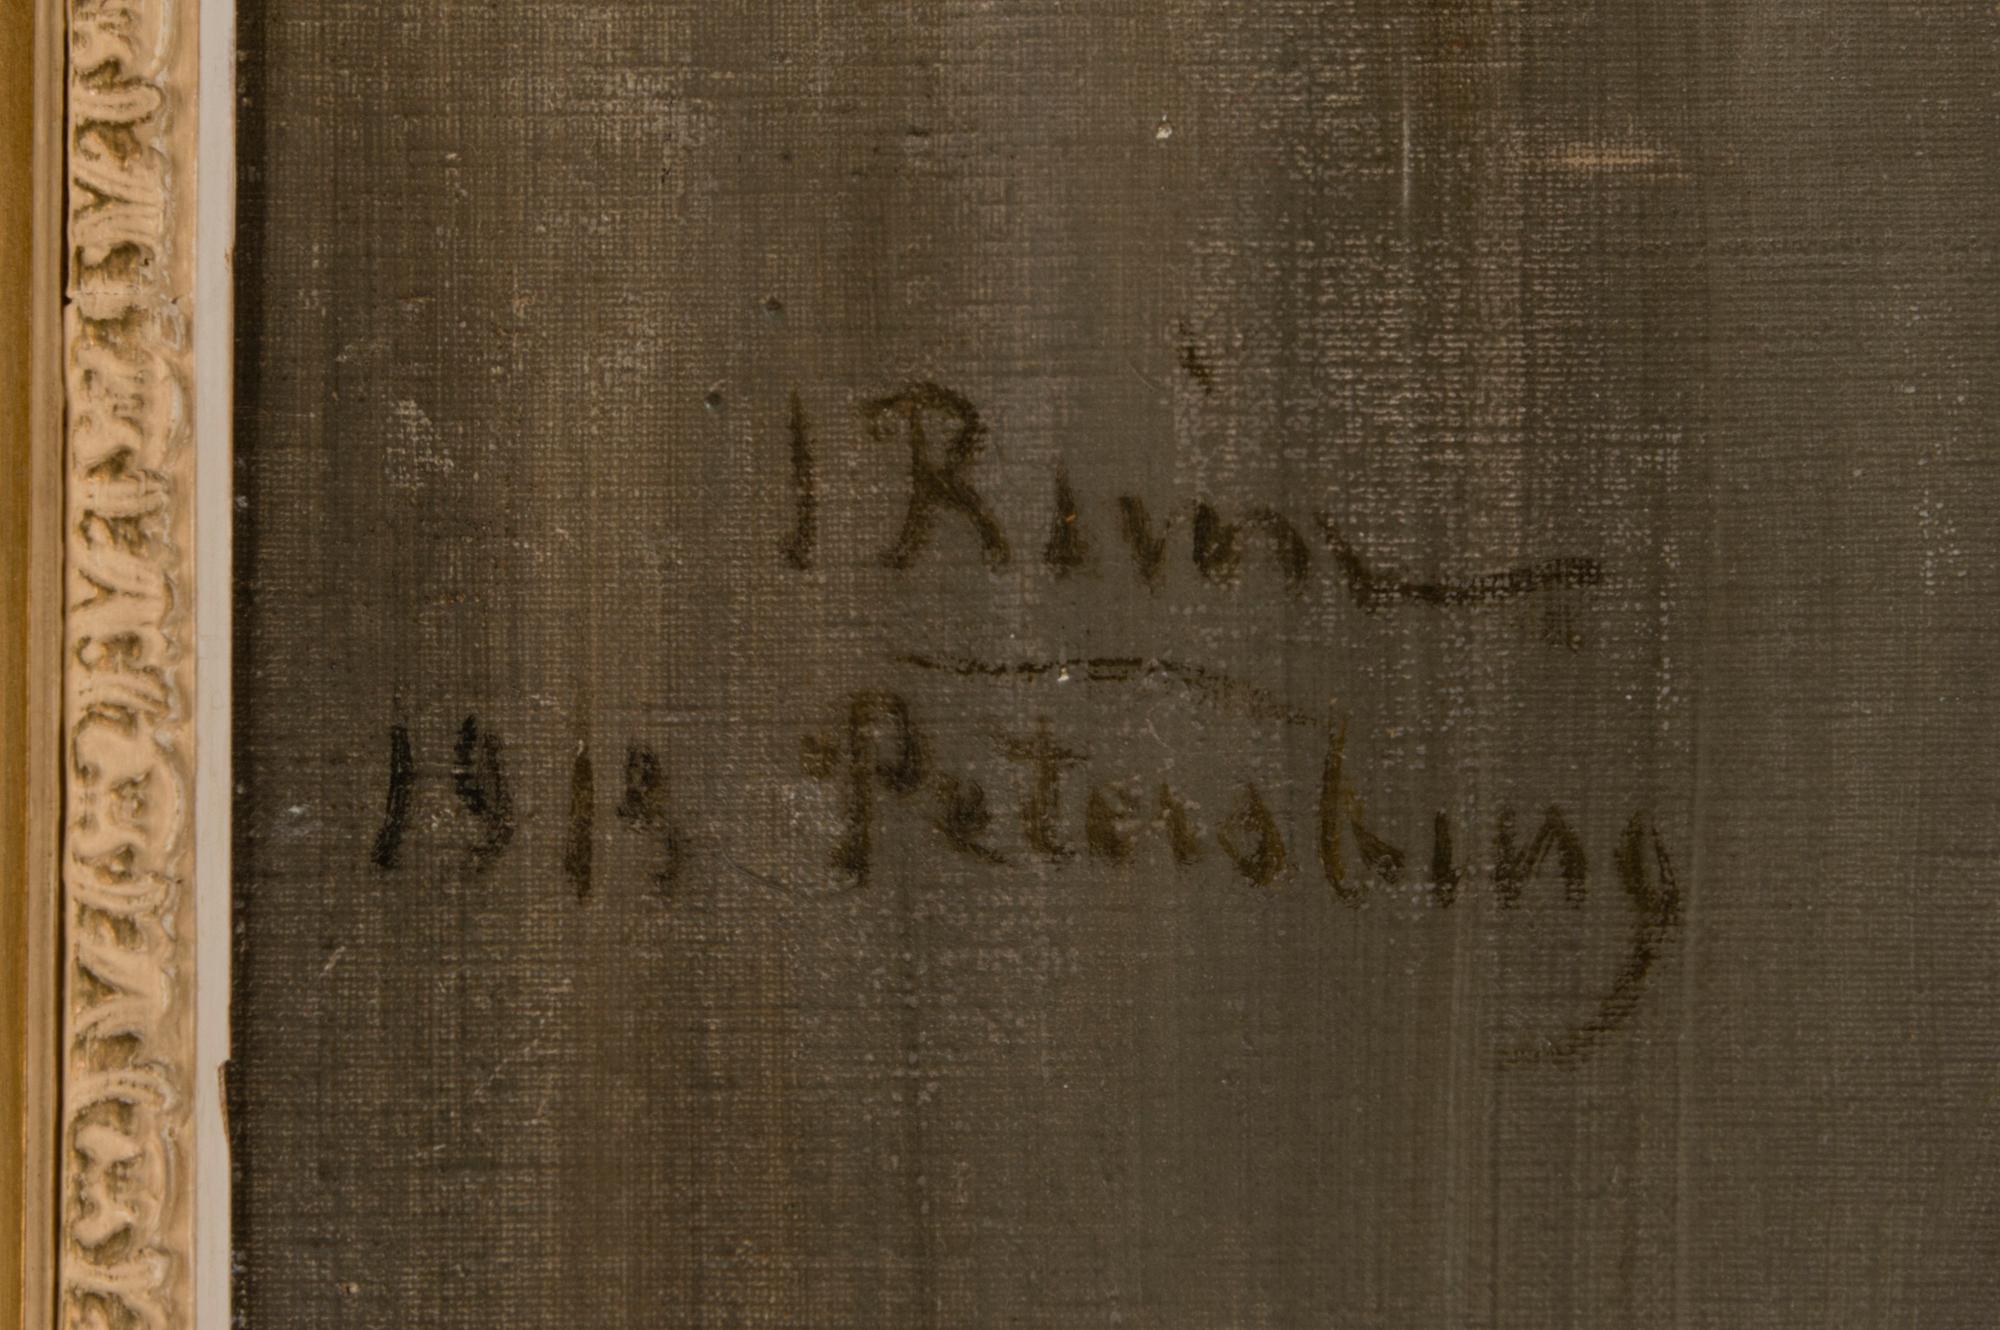 I Rivin
1913 Petersburg